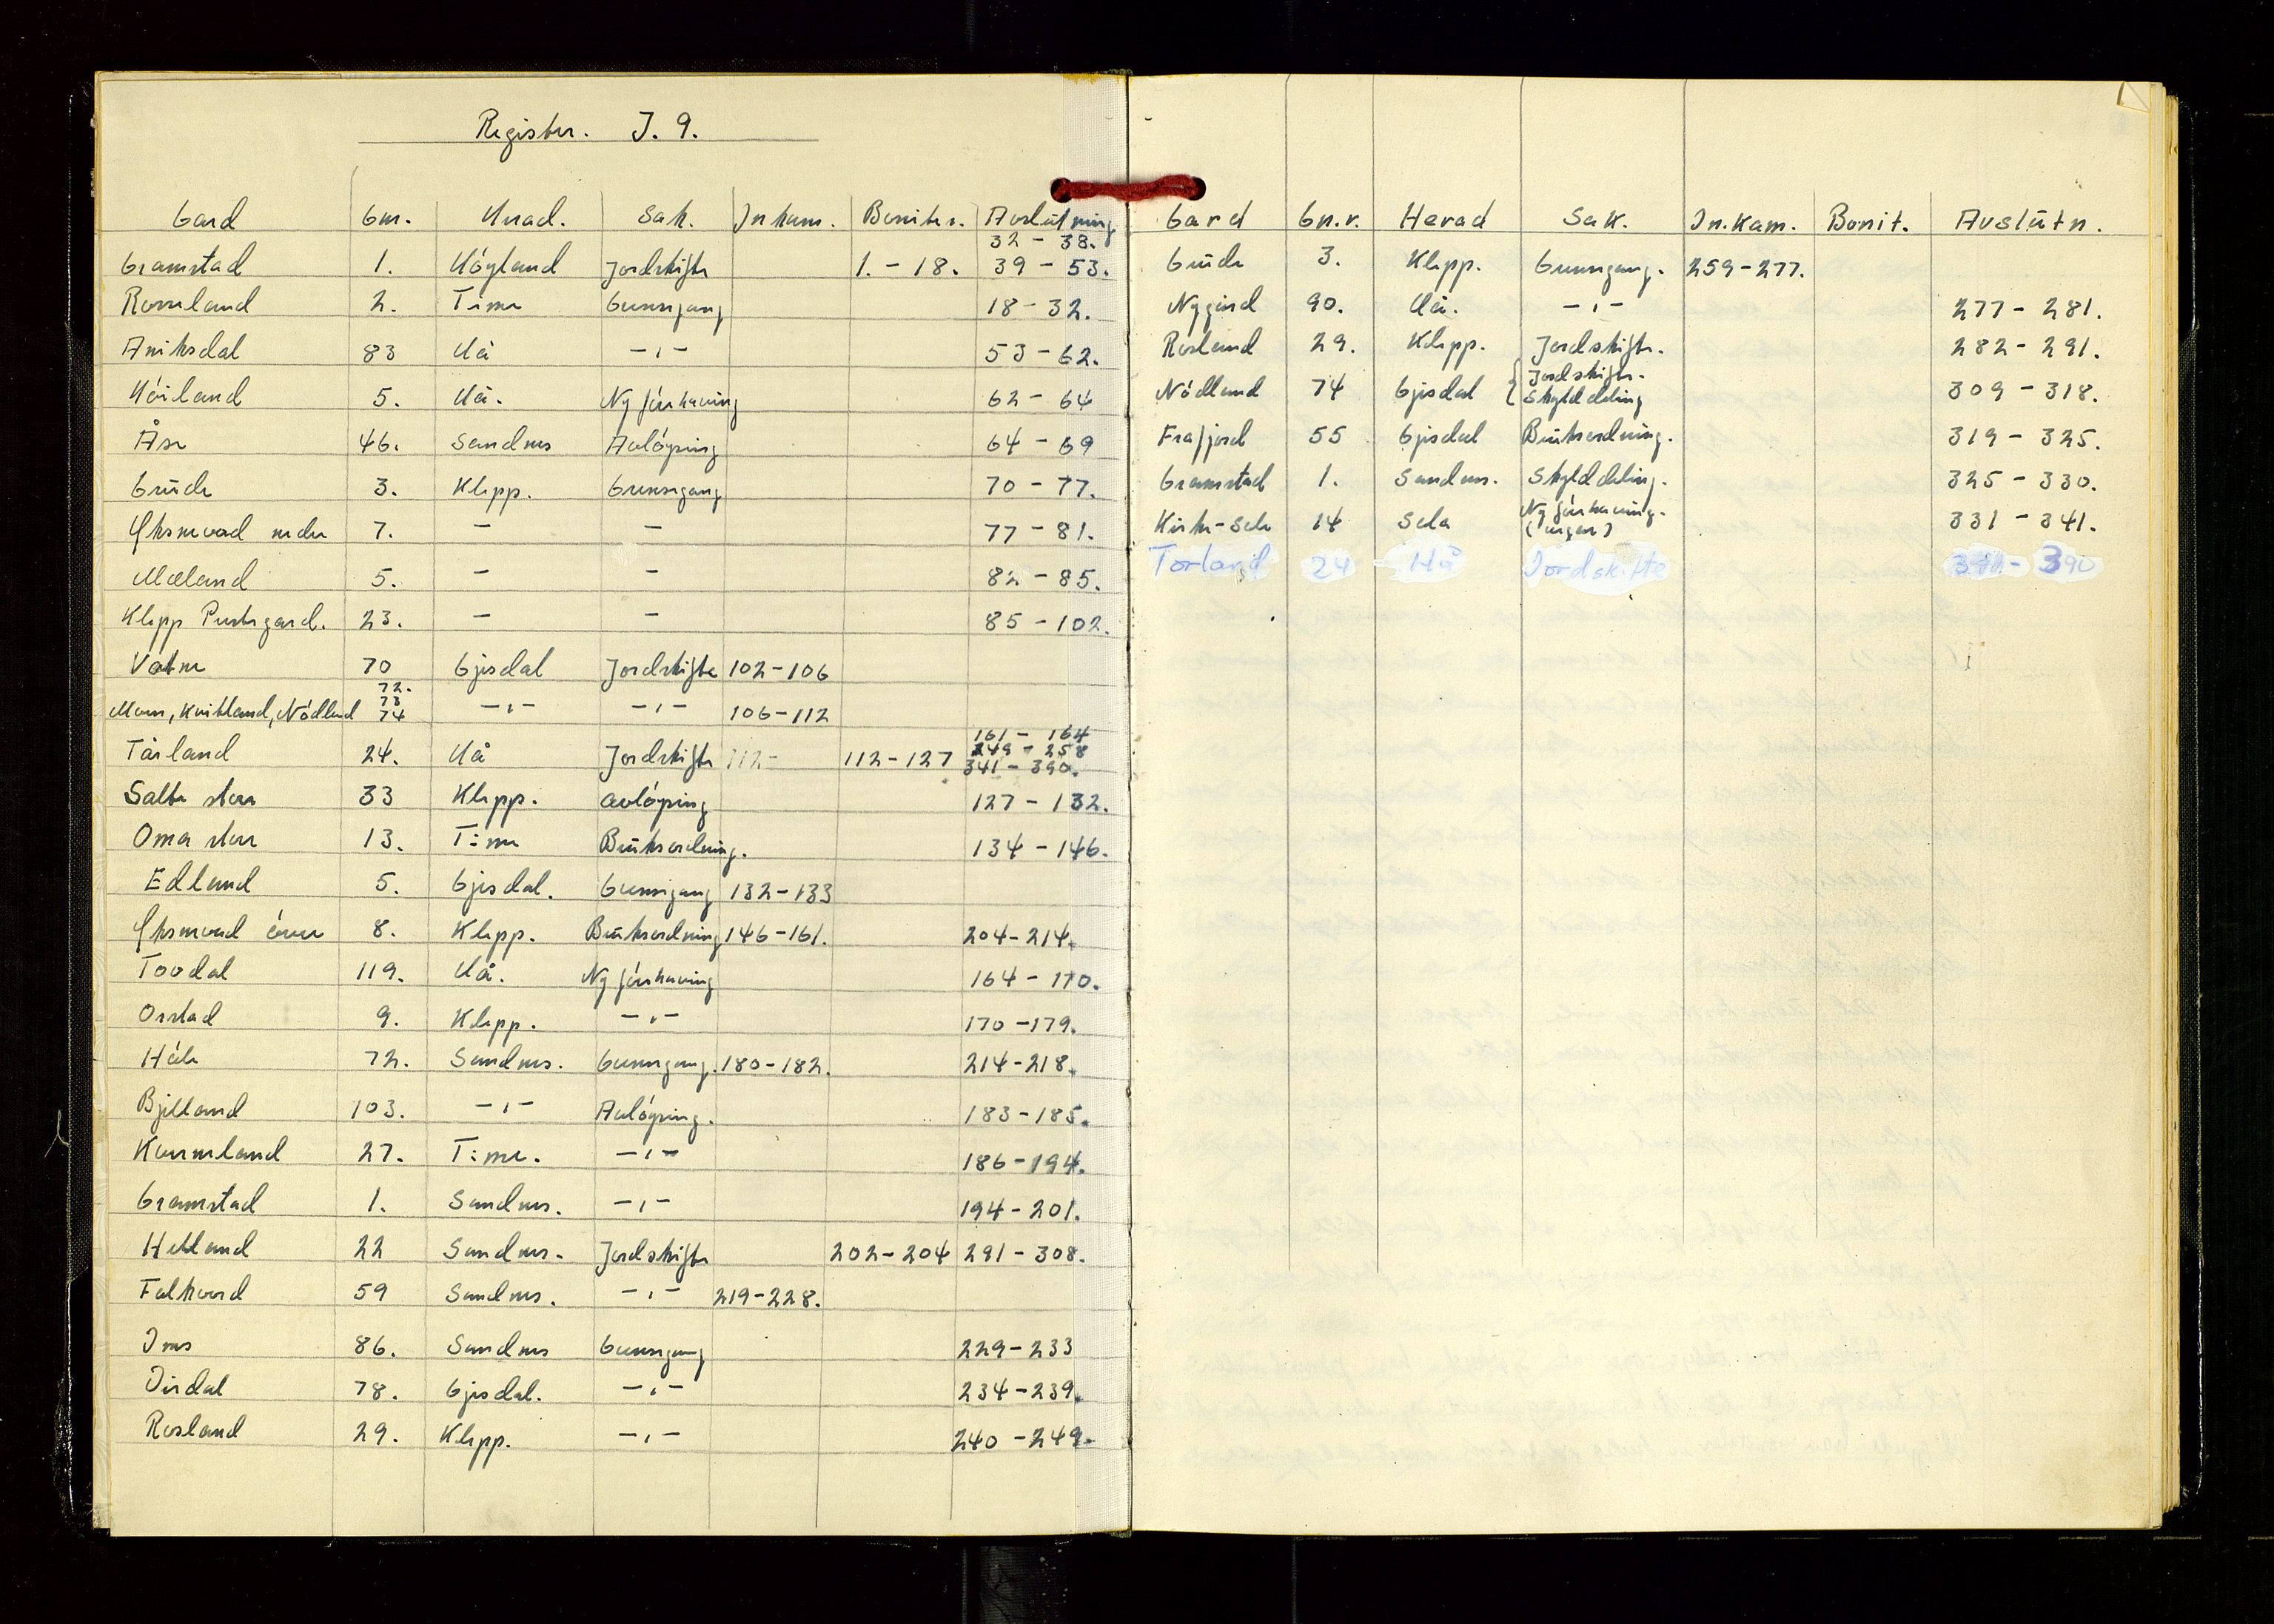 Register. J. 9.
Gard Gnr. Herad. Sak. Innkom. Boniter. Avslutning
Gramstad 1. Høyland Jordskifte 1. - 18. 32 - 38. 39 - 53.
Rosseland 2. Time Grensegang 18 - 32.
Aniksdal 83 Hå -"- 53 - 62.
Høiland 5. Hå. Ny forkaving 62 - 64
Åse 46. Sandnes Avløysing 64 - 69
Grude 3. Klepp. Grensegang 70 - 77.
Øksnevad nedre 7. - - 77 - 81.
Mæland 5. - - 82 - 85.
Klepp Prestegard. 23. - - 85 - 102.
Vatne 70 Gjesdal Jordskifte 102 - 106
Moen, Kvitland, Nødland 72. 73 74 -"- -"- 106 - 112
Tårland 24. Hå Jordskifte 112 - 112 - 127 161 - 164 249 - 258 341 - 390.
Salte store 33 Klepp. avløysing 127 - 132.
Oma store 13. Time Bruksordning. 134 - 146.
Edland 5. Gjesdal. Grensegang 132 - 133
Øksnevad øvre 8. Klepp. Bruksordning 146 - 161. 204 - 214.
Tovdal 119. Hå. Ny forkaving 164 - 170.
Orstad 9. Klepp. -"- 170 - 179.
Høle 72. Sandnes. Grensegang. 180 - 182. 214 - 218.
Bjelland 103. -"- Avløysing. 183 - 185.
Kverneland 27. Time. -"- 186 - 194.
Gramstad 1. Sandnes. -"- 194 - 201.
Hetland 22 Sandnes. Jordskifte 202 - 204 291 - 308.
Folkvord 59 Sandnes. -"- 219 - 228.
Ims 86. Sandnes Grensegang 229 - 233
Dirdal 78. Gjesdal. -"- 234 - 239.
Rosland 29. Klepp. -"- 240 - 249.
Gard Gn.r. Herad Sak. In.kom. Bonit. Avslutn.
Grude 3. Klepp. Grensegang. 259 - 277.
Nygård 90. Hå. -"- 277 - 281.
Rosland 29. Klepp. Jordskifte. 282 - 291.
Nødland 74 Gjesdal { Jordskifte. Skylddeling 309 - 318.
Frafjord 55 Gjesdal Bruksordning. 319 - 325.
Gramstad 1. Sandnes. Skylddeling. 325 - 330.
Kirke-Sole 14 Sola Ny forkaving. 331 - 341.
Torland 24 - Hå Jordskifte 341 - 390